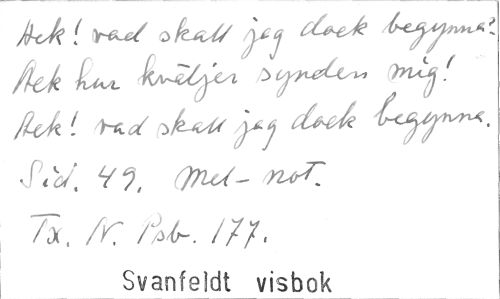 Ack! vad skall jag dock begynna?
Ack hur kväljer synden mig!
Ack! vad skall jag dock begynna.
Sid. 49. Mel-not.
Tx. N. Psb. 177.
Svanfeldt visbok